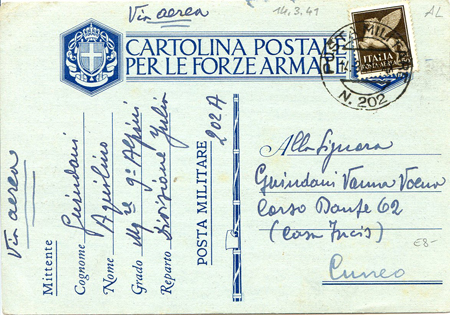 Via aerea
14.3.41
AL
CARTOLINA POSTALE
PER LE FORZE ARMATE
POSTA MILITARE
N. 202
ITALIA
POSTA AEREA
Via aerea
Mittente
Cognome Guindani
Nome Agiolino
Grado Mg re 9° Alpini
Reparto Divisione Julia
POSTA MILITARE 202 A
Alla Signora
Guindani Vanna
Corso Dante 62
(Casa Incis)
Cuneo
€8-